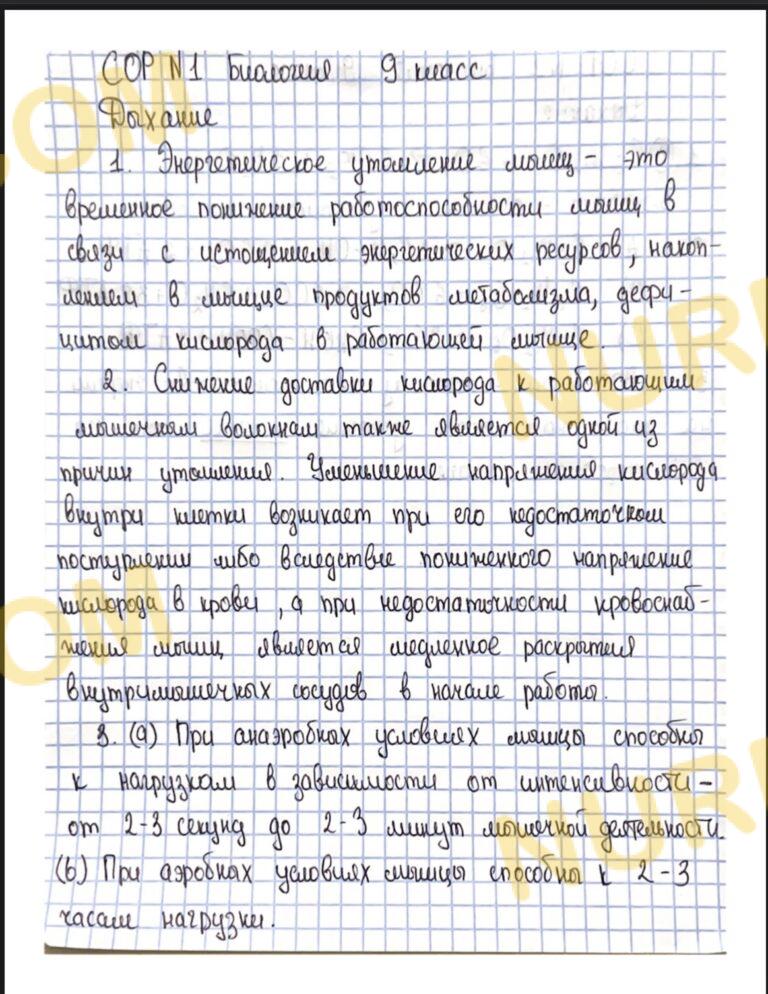 СОР №1 Биология 9 класс
Дыхание
1. Энергетическое утомление мышц - это
временное понижение работоспособности мышц в
связи с истощением энергетических ресурсов, накоп-
лением в мышце продуктов метаболизма, дефи-
цитом кислорода в работающей мышце.
2. Снижение доставки кислорода к работающим
мышечным волокнам также является одной из
причин утомления. Уменьшение напряжения кислорода
внутри клетки возникает при его недостаточном
поступлении либо вследствие пониженного напряжение
кислорода в крови, а при недостаточности кровоснаб-
жения мышц является медленное раскрытия
внутримышечных сосудов в начале работы.
3. (a) При анаэробных условиях мышцы способны
к нагрузкам в зависимости от интенсивности-
от 2-3 секунд до 2-3 минут мышечной деятельности.
(b) При аэробных условиях мышцы способны к 2-3
часам нагрузки.
COM
NUR
COM
NUR